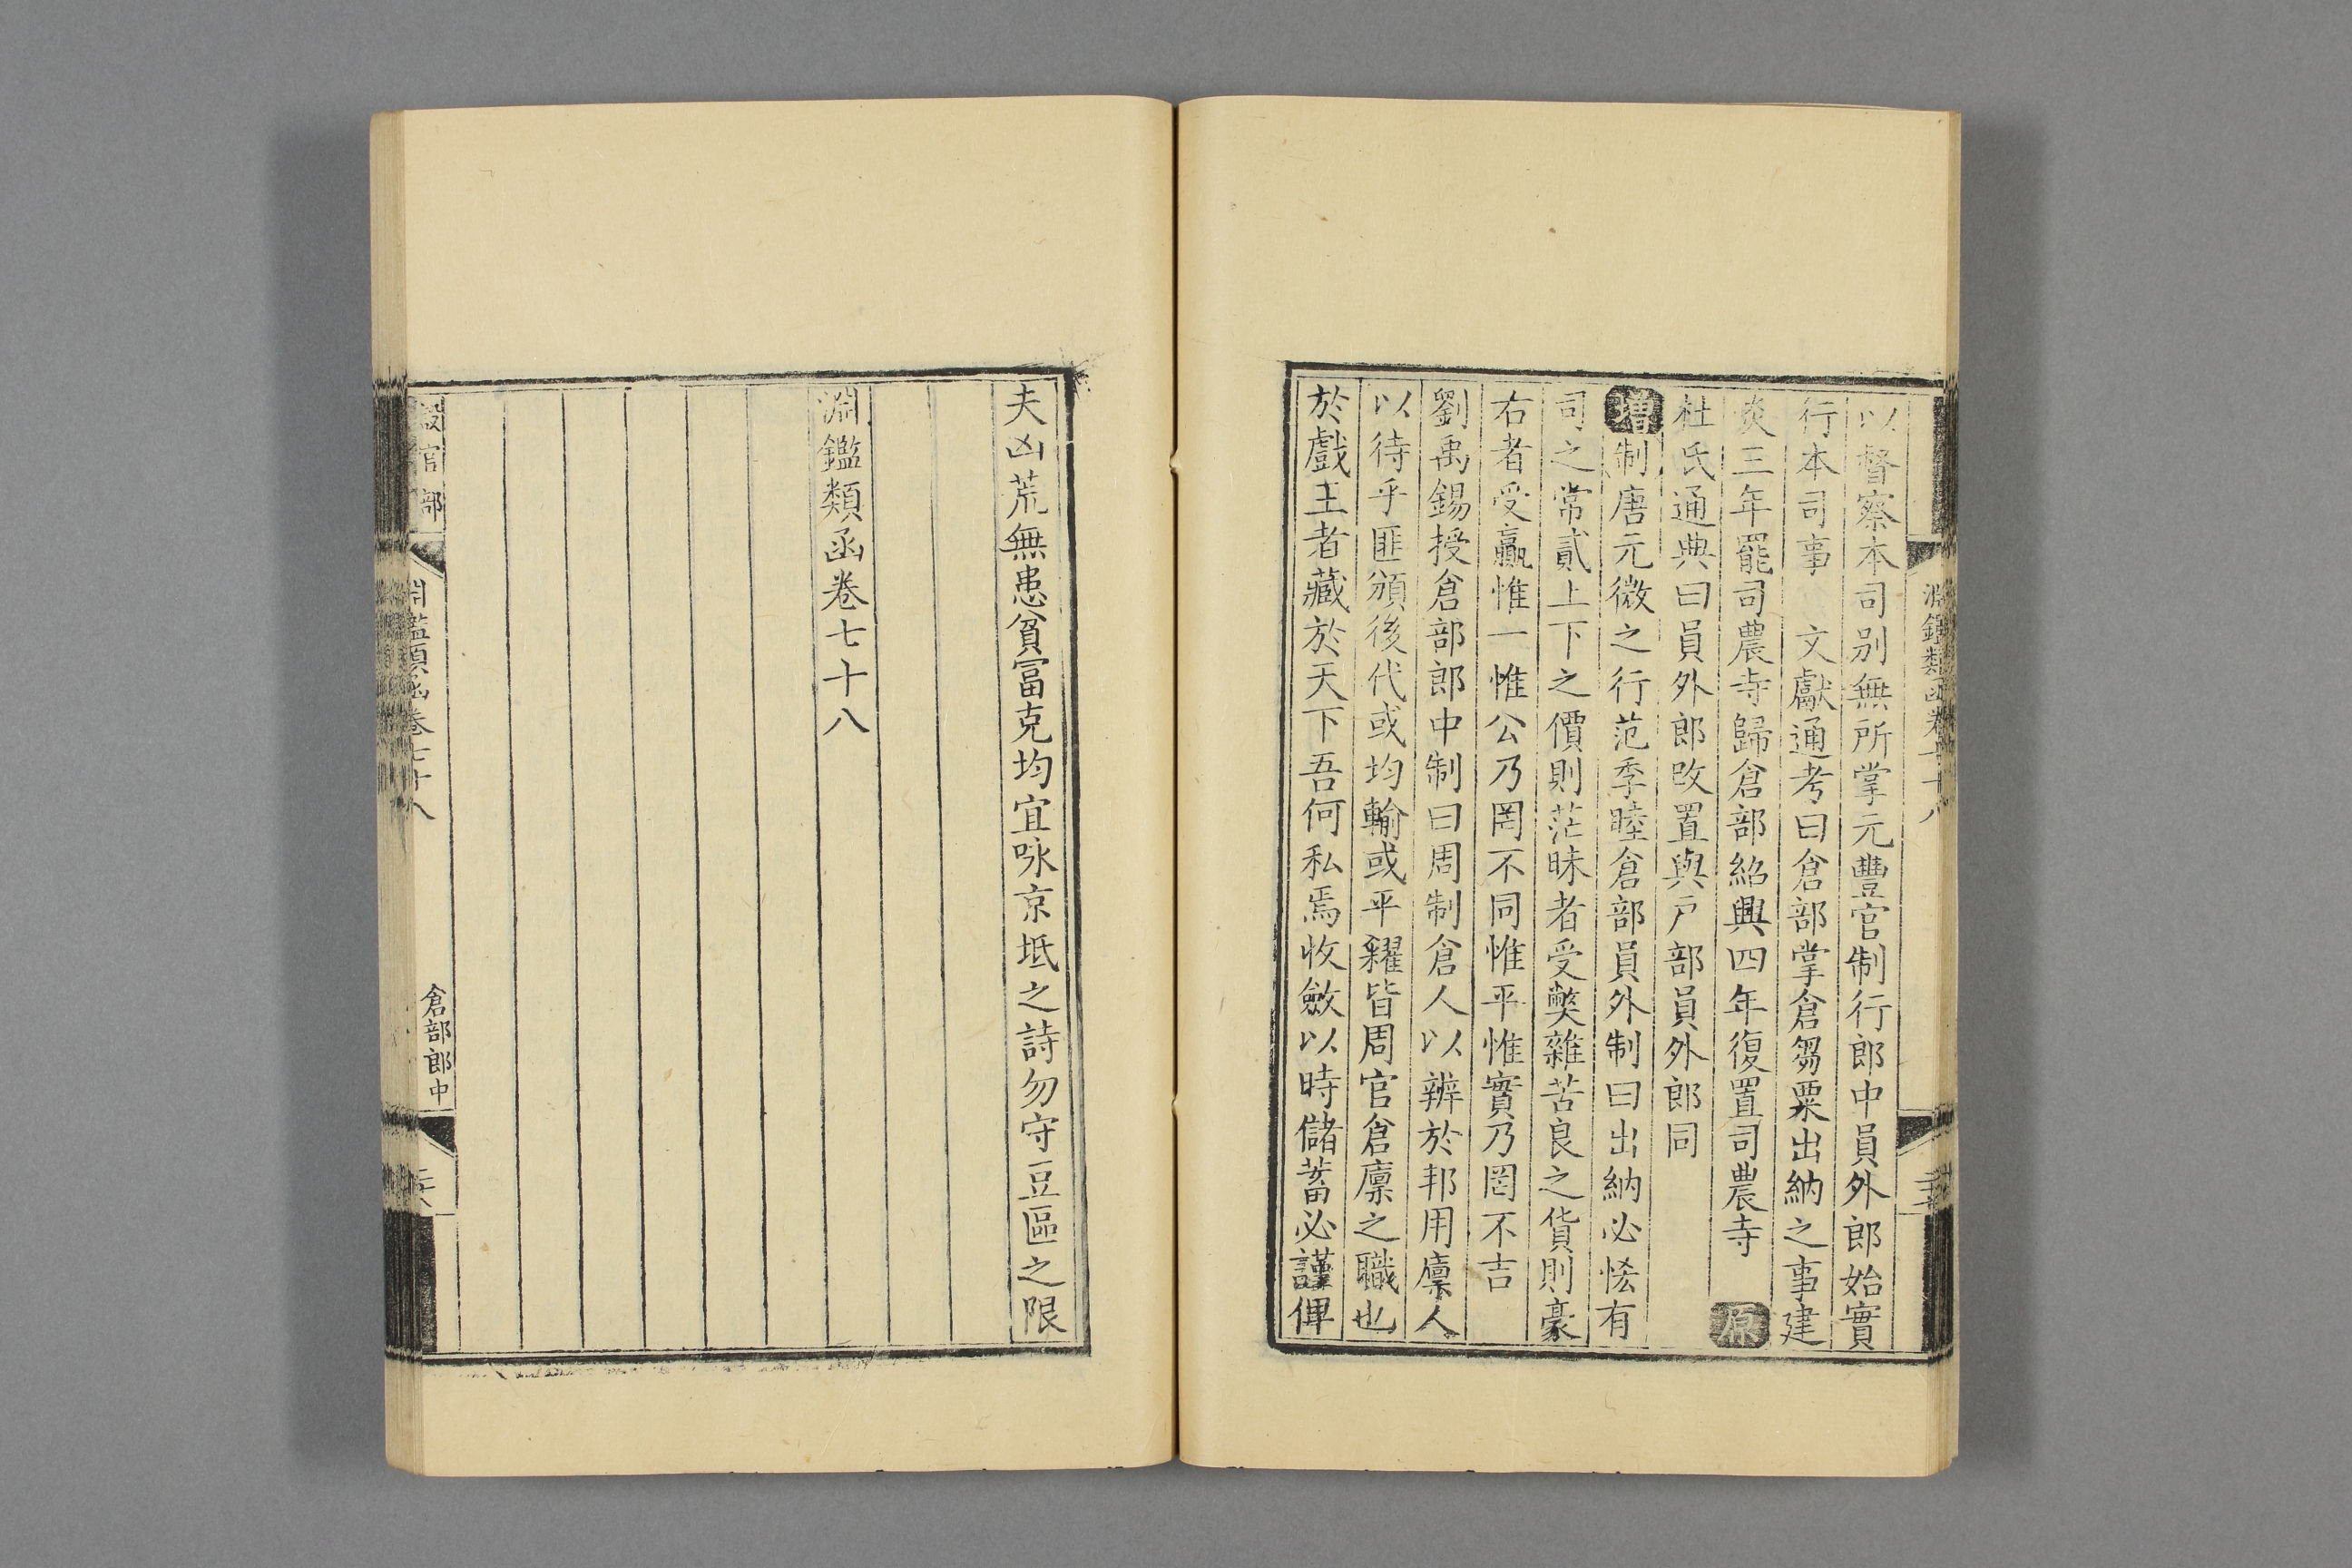 以督察本司别無所掌元豐官制行郎中員外郎始實
行本司事 文獻通考曰倉部掌倉芻粟出納之事建
炎三年罷司農寺歸倉部紹興四年復置司農寺 原
杜氏通典曰員外郎改置與戸部員外郎同
增制唐元微之行范季睦倉部員外制曰出納必恡有
司之常貳上下之價則茫昧者受獘雜苦良之貨則豪
右者受贏惟一惟公乃罔不同惟平惟實乃罔不吉
劉禹錫授倉部郎中制曰周制倉人以辨於邦用廪人
以待乎匪頒後代或均輸或平糴皆周官倉廪之職也
於戲王者藏於天下吾何私焉收斂以時儲蓄必謹俾
夫凶荒無患貧冨克均宜咏京坻之詩勿守豆區之限
淵鑑類函卷七十八
設官部
淵鑑類函卷七十八
倉部郎中
二十八